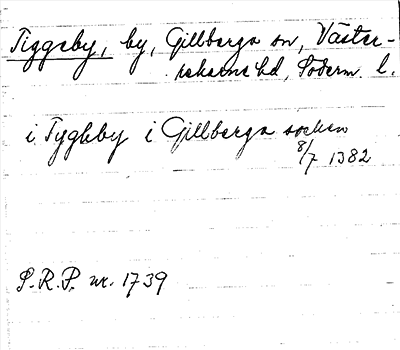 Tiggeby, by, Gillberga sn, Väster-
rekarne hd, Söderm. l.
i Tygleby i Gillberga socken
8/7 1382
S.R.P. nr. 1739